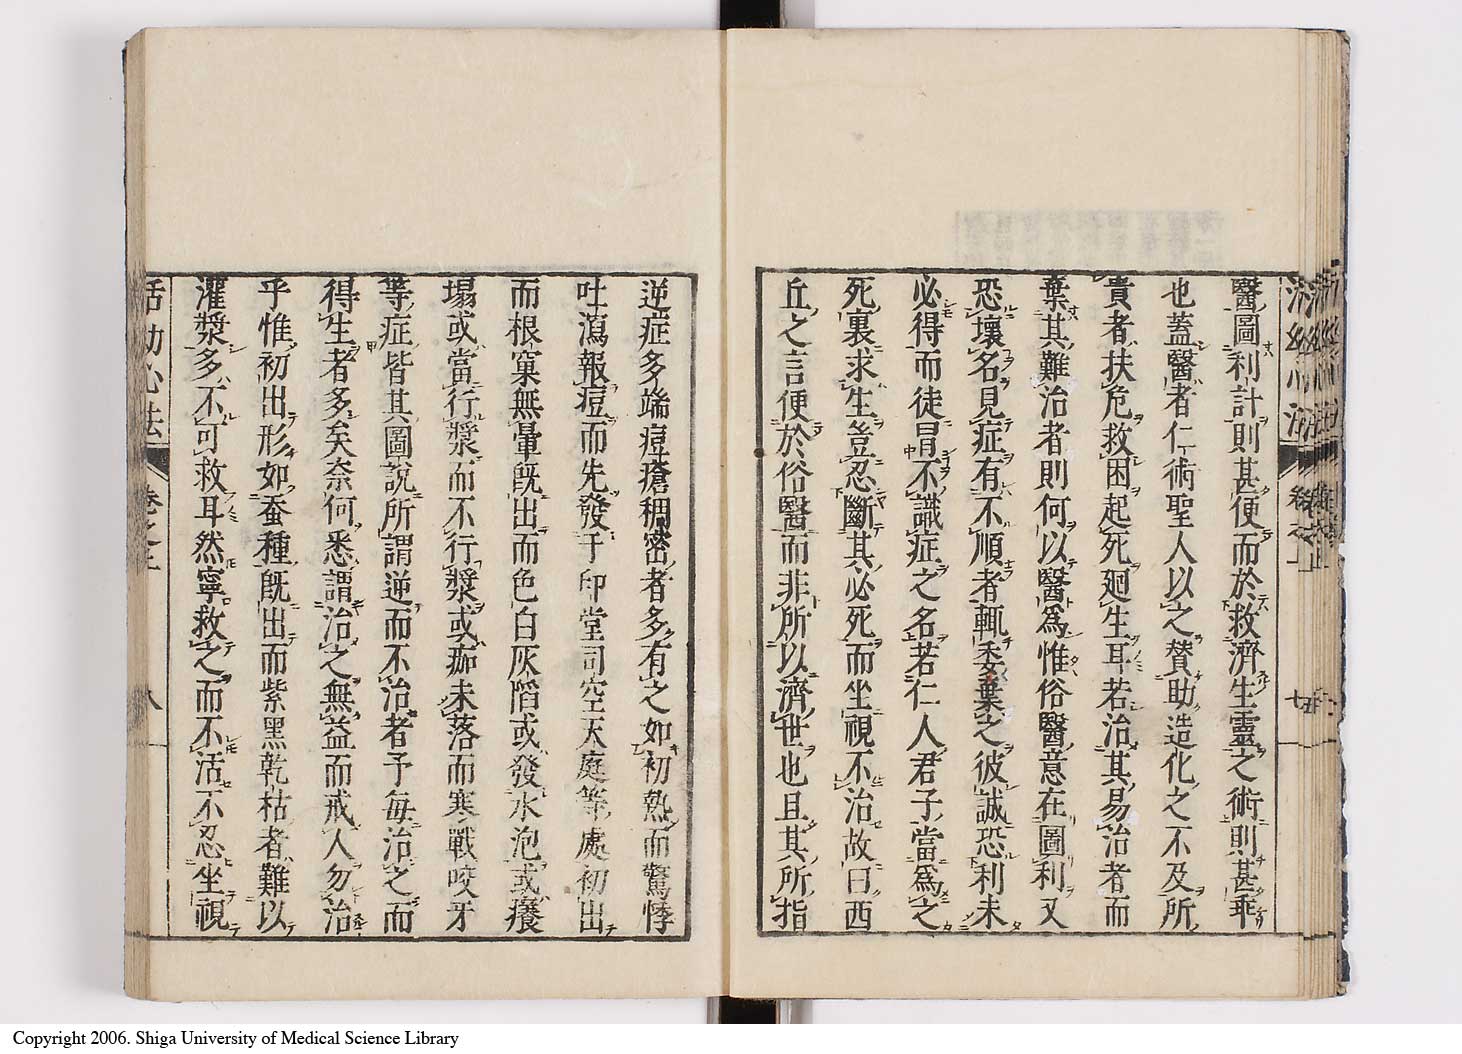 醫圖利計則甚便而於救濟生靈之術則甚乖
也蓋醫者仁術聖人以之賛助造化之不及所
貴者扶危救困起死廻生耳若治其易治者而
棄其難治者則何以醫爲惟俗醫意在圖利又
恐壞名見症有不順者輒委棄之彼誠恐利未
必得而徒冐不識症之名若仁人君子當爲之
死裏求生豈忍斷其必死而坐視不治故曰西
丘之言便於俗醫而非所以濟世也且其所指
逆症多端痘瘡稠密者多有之如初熱而驚悸
吐瀉報痘而先發于印堂司空天庭等處初出
而根窠無暈旣出而色白灰䧟或發水泡或癢
塌或當行漿而不行漿或痂未落而寒戰咬牙
等症皆其圖說所謂逆而不治者予每治之而
得生者多矣奈何悉謂治之無益而戒人勿治
乎惟初出形如蚕種旣出而紫黑乾枯者難以
灌漿多不可救耳然寧救之而不活不忍坐視
活幼心法
卷之上
八
Copyright 2006. Shiga University of Medical Science Library